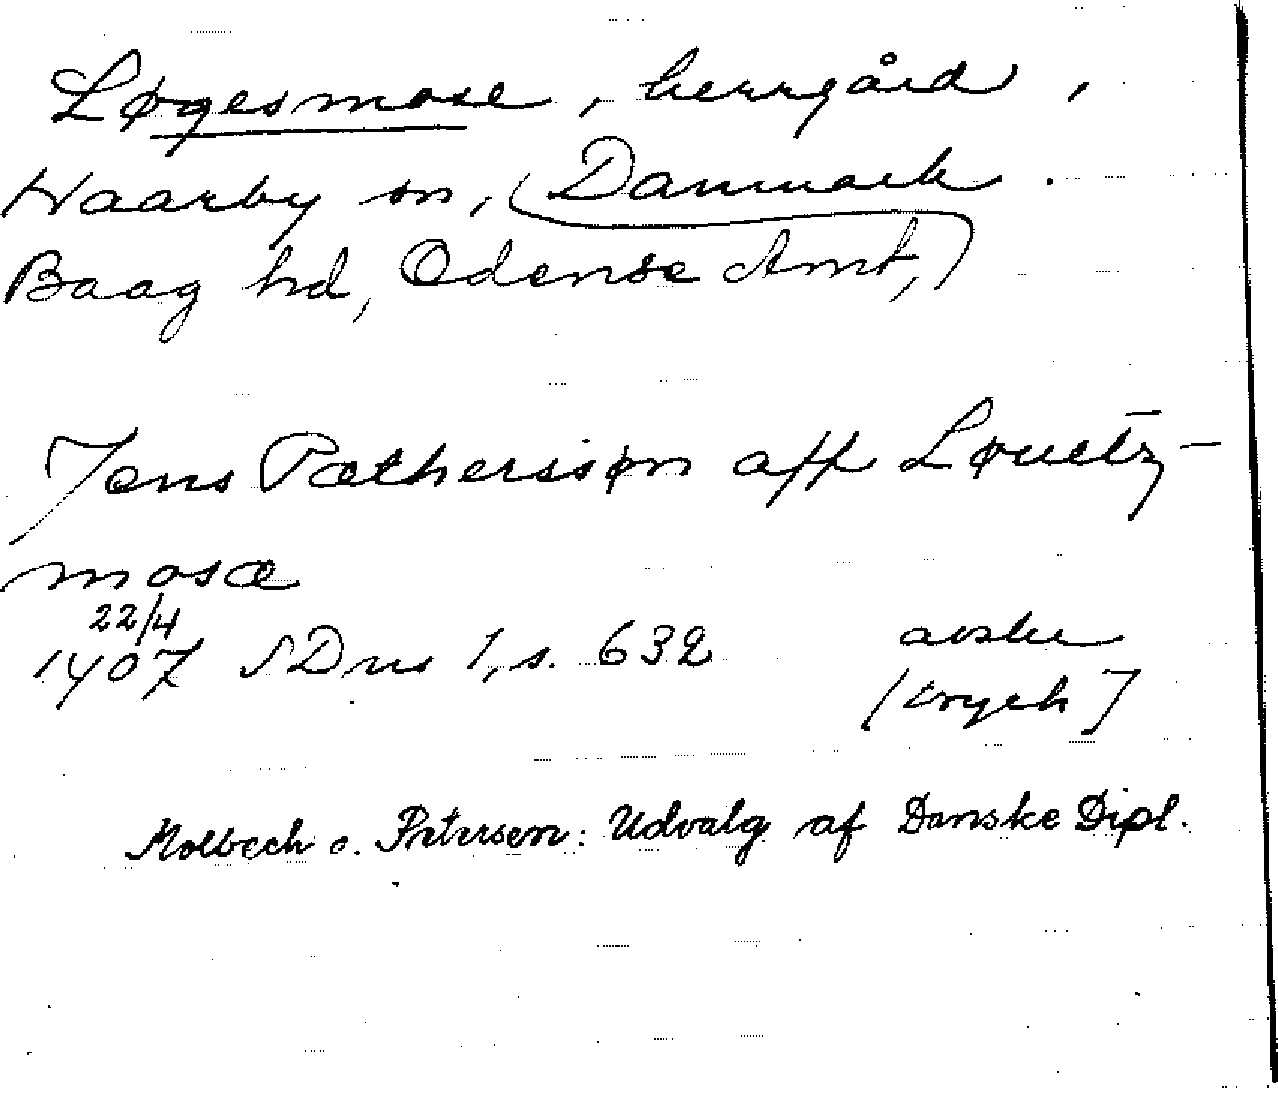 Løgesmose, herrgård,
Haarby sn, (Danmark.
Baag hd, Odense Amt,)
Jens Pæthersszøn aff Løuetz-
mosæ
22/4
1407 SDns 1, s. 632 avskr
[tryck]
Molbech o. Petersen: Udvalg af Danske Dipl.